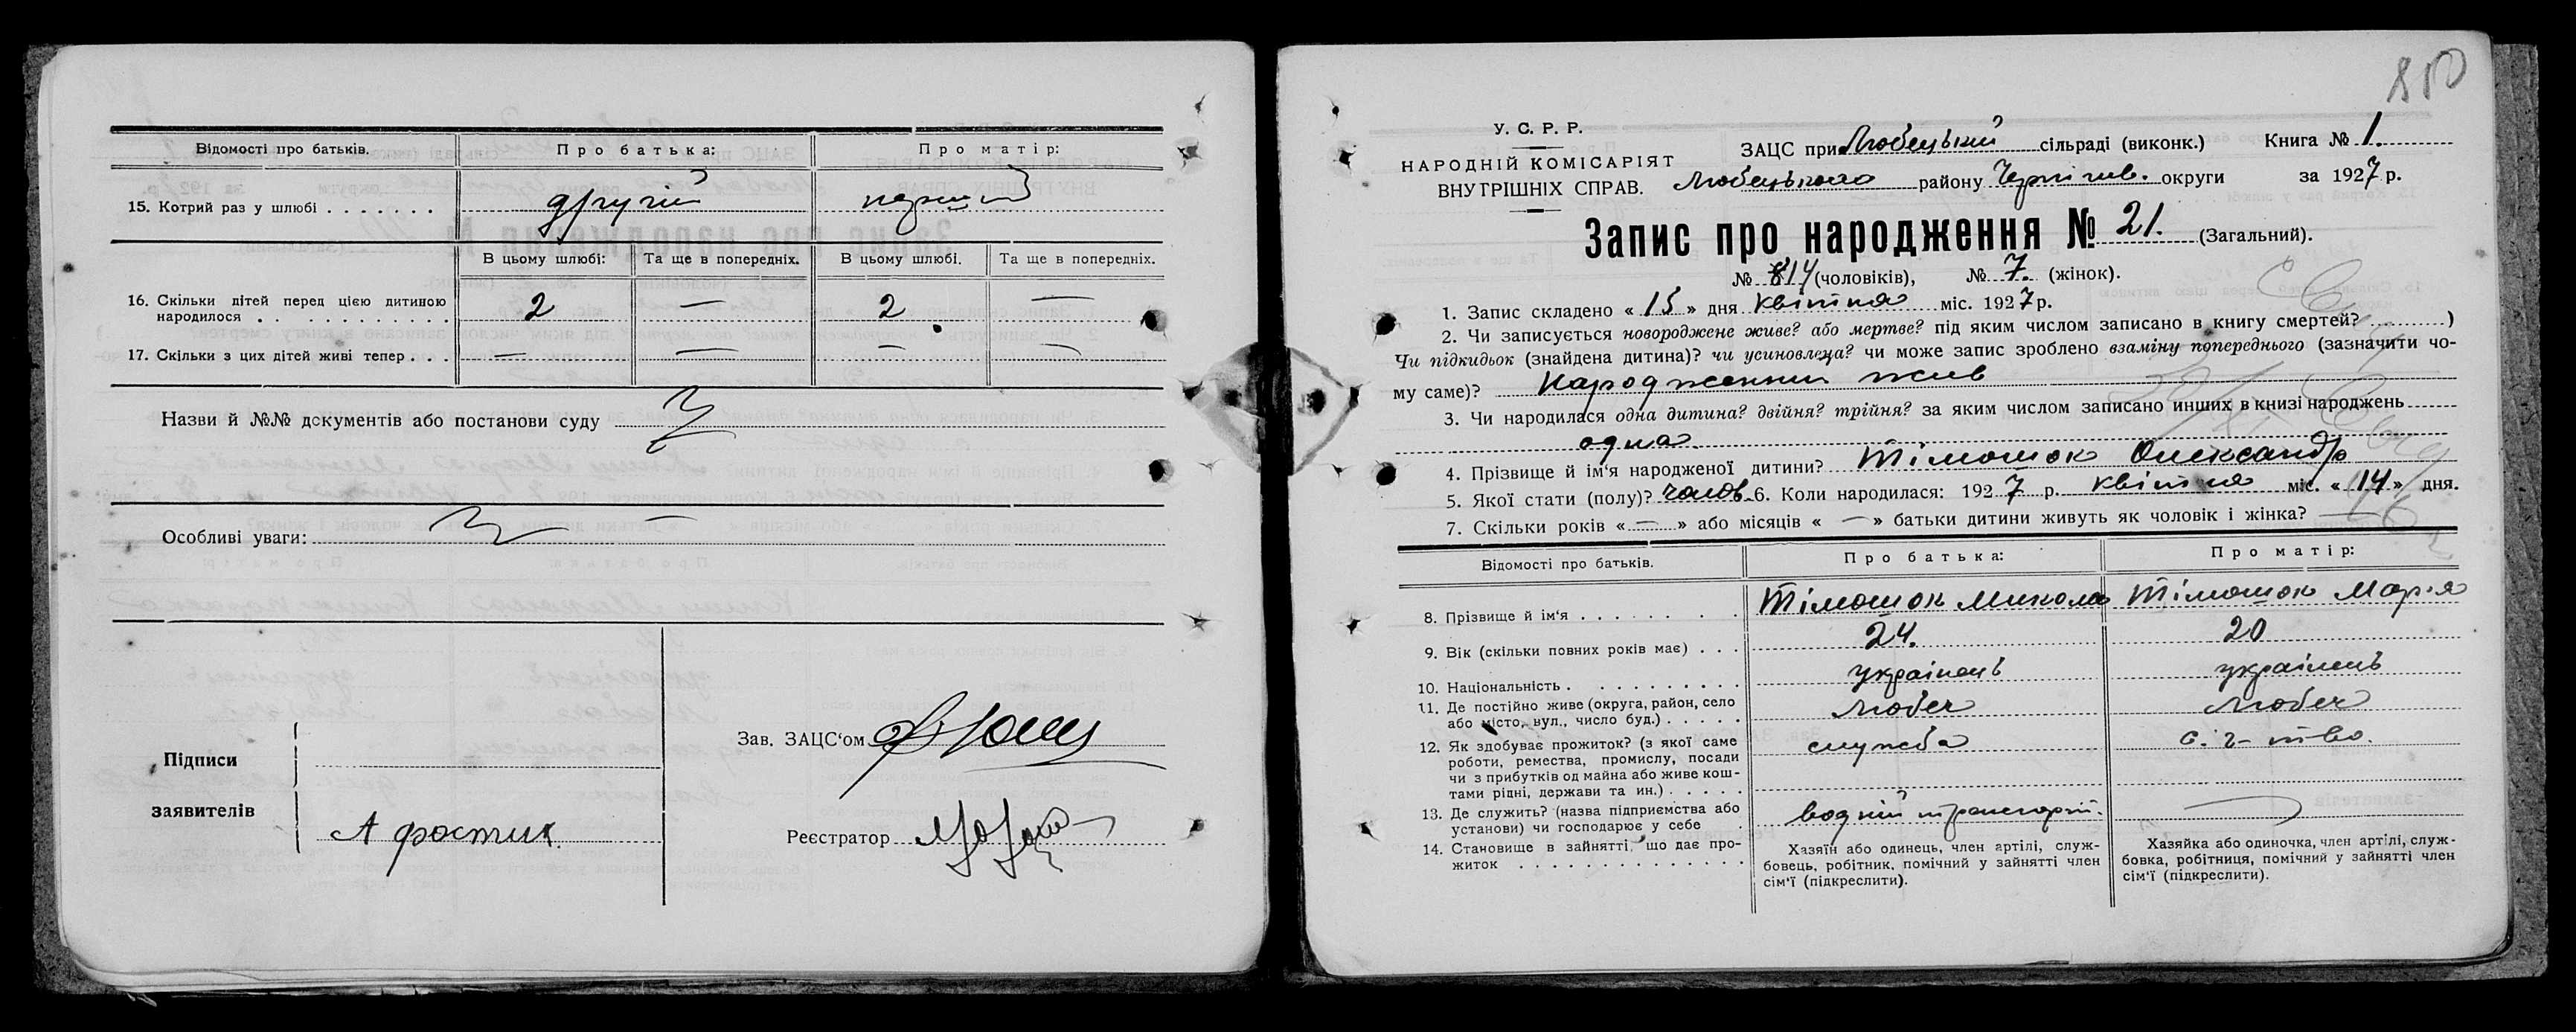 Відомості про батьків.
Про батька:
Про матір:
15. Котрий раз у шлюбі . . . . . . .
другий
перший
В цьому шлюбі:
Та ще в попередніх.
В цьому шлюбі.
Та ще в попередніх.
16. Скільки дітей перед цією дитиною
народилося . . . . . . . . . . . .
2 — 2 —
17. Скільки з цих дітей живі тепер . . .
— — — —
Назви й №№ документів або постанови суду
Особливі уваги: —
Підписи
заявителів
Зав. ЗАЦС'ом
Реєстратор
850
У. С. Р. Р.
НАРОДНІЙ КОМІСАРІЯТ
ВНУТРІШНІХ СПРАВ.
ЗАЦС при Любецький сільраді (виконк.) Книга № 1.
Любецького району Чернігив. округи за 1927 р.
Запис про народження № 21. (Загальний).
№ 14 (чоловіків), № 7. (жінок).
1. Запис складено « 15 » дня квітня міс. 1927 р.
2. Чи записується новороджене живе? або мертве? під яким числом записано в книгу смертей? )
Чи підкидьок (знайдена дитина)? чи усиновлена? чи може запис зроблено взаміну попереднього (зазначити чо-
му саме)? Народженний жив
3. Чи народилася одна дитина? двійня? трійня? за яким числом записано инших в книзі народжень
одна
4. Прізвище й ім'я народженої дитини? Тімошок Олександр
5. Якої стати (полу)? чолов. 6. Коли народилася: 1927 р. квітня міс. « 14 » дня.
7. Скільки років « — » або місяців « — » батьки дитини живуть як чоловік і жінка? —
Відомості про батьків.
Про батька:
Про матір:
8. Прізвище й ім'я . . . . . . . .
Тімошок Микола
Тімошок Марія
9. Вік (скільки повних років має) . . .
24.
20
10. Національність . . . . . . . . . .
українець
українець
11. Де постійно живе (округа, район, село
або місто, вул., число буд.) . . . . .
Любеч
Любеч
12. Як здобуває прожиток? (з якої саме
роботи, ремества, промислу, посади
чи з прибутків од майна або живе кош-
тами рідні, держави та ин.) . . . . .
служба
с. г-тво.
13. Де служить? (назва підприємства або
установи) чи господарює у себе .
водний транспорт.
—
14. Становище в зайнятті, що дає про-
житок . . . . . . . . . . . . . .
Хазяїн або одинець, член артілі, служ-
бовець, робітник, помічний у зайнятті член
сім'ї (підкреслити).
Хазяйка або одиночка, член артілі, служ-
бовка, робітниця, помічний у зайнятті член
сім'ї (підкреслити).